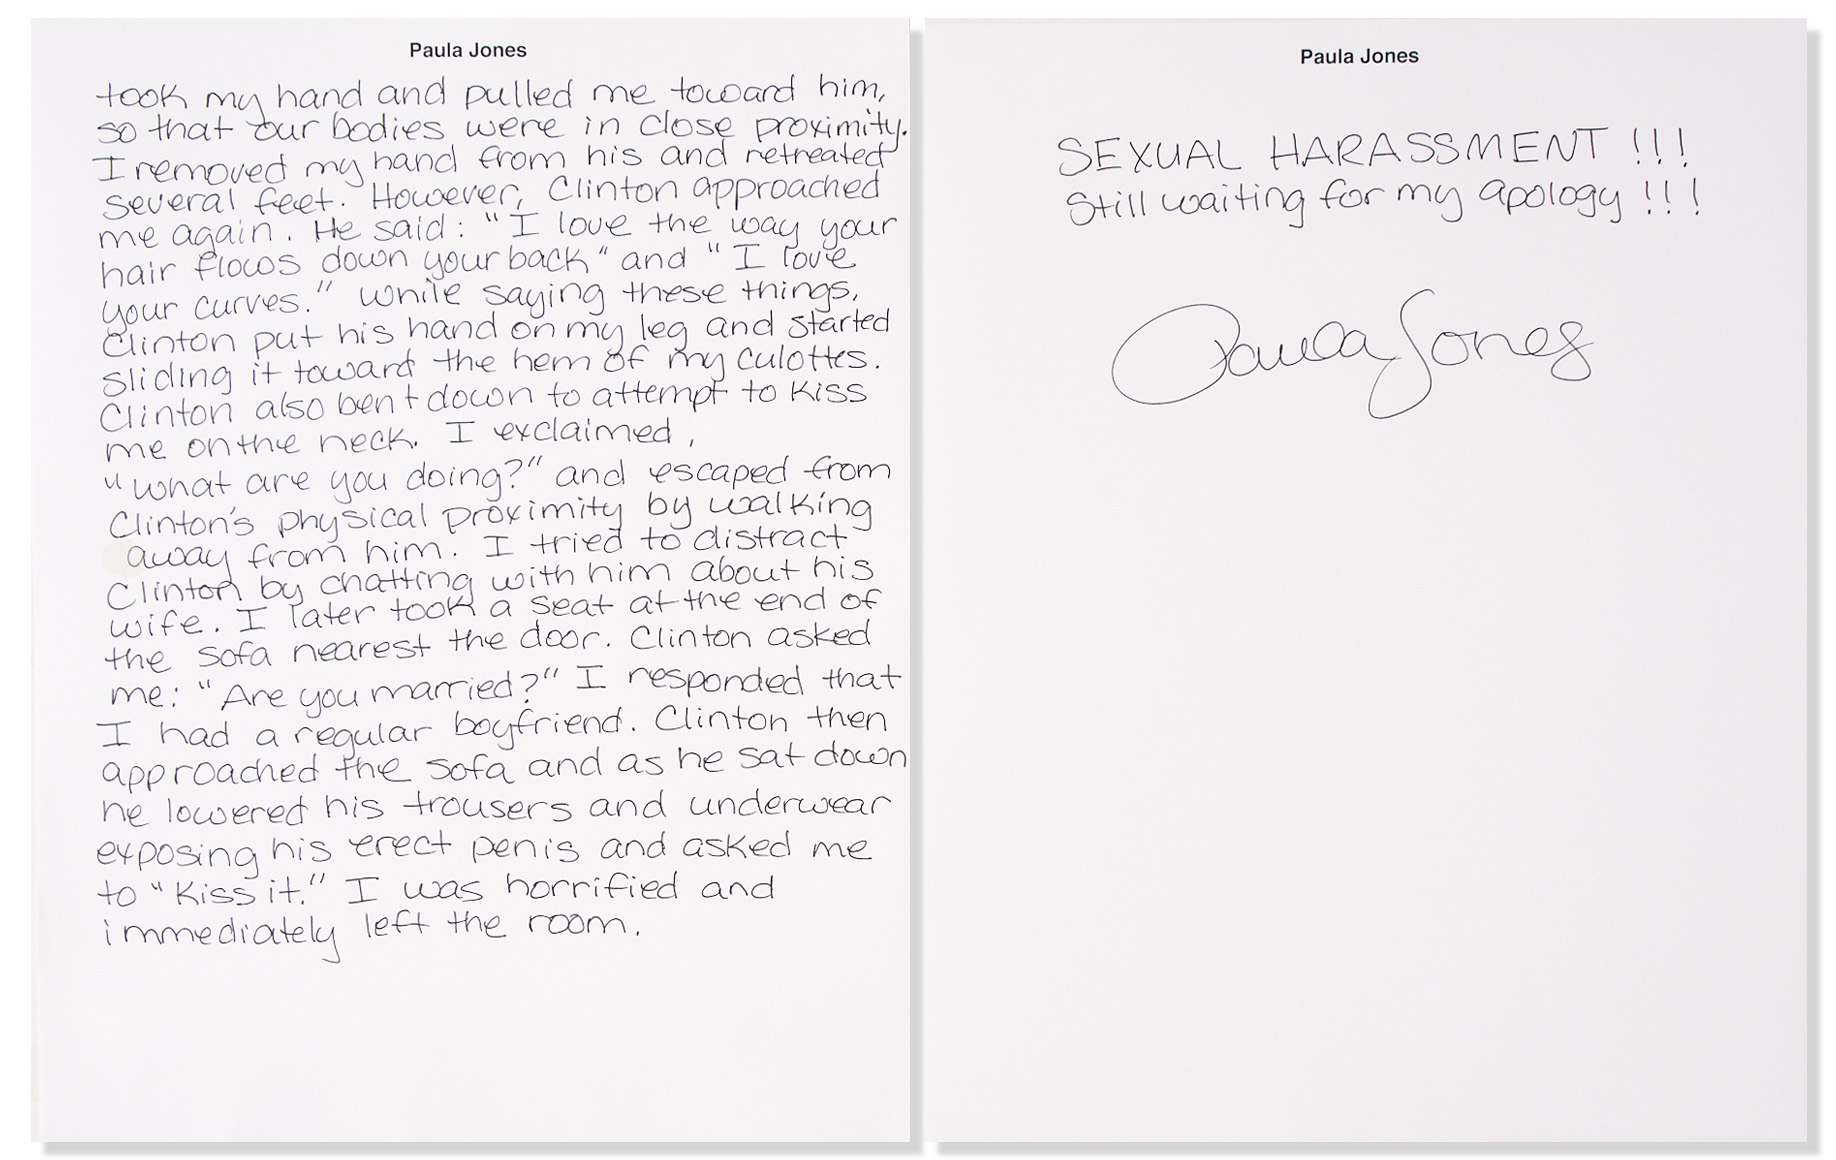 Paula Jones
took my hand and pulled me toward him,
so that our bodies were in close proximity.
I removed my hand from his and retreated
several feet. However, Clinton approached
me again. He said: "I love the way your
hair flows down your back" and "I love
your curves." While saying these things,
Clinton put his hand on my leg and started
sliding it toward the hem of my culottes.
Clinton also bent down to attempt to kiss
me on the neck. I exclaimed,
"What are you doing?" and escaped from
Clinton's physical proximity by walking
away from him. I tried to distract
Clinton by chatting with him about his
wife. I later took a seat at the end of
the sofa nearest the door. Clinton asked
me: "Are you married?" I responded that
I had a regular boyfriend. Clinton then
approached the sofa and as he sat down
he lowered his trousers and underwear
exposing his erect penis and asked me
to "Kiss it." I was horrified and
immediately left the room.
Paula Jones
SEXUAL HARASSMENT !!!
Still waiting for my apology !!!
Paula Jones